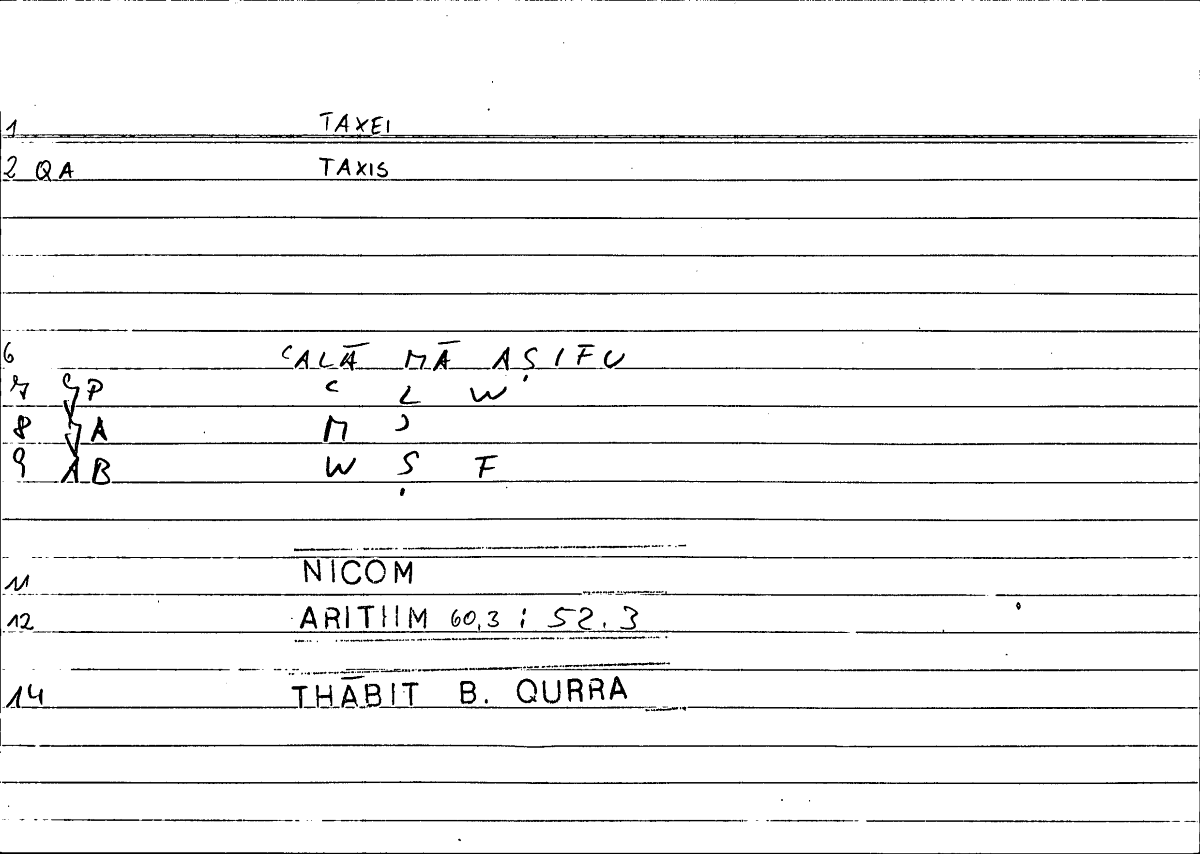 1 TAXEI
2 QA TAXIS
6 ʿALĀ MĀ AṢIFU
7 P ʿ L W
8 A M ʾ
9 AB W Ṣ F
11 NICOM
12 ARITHM 60,3 ; 52.3
14 THĀBIT B. QURRA